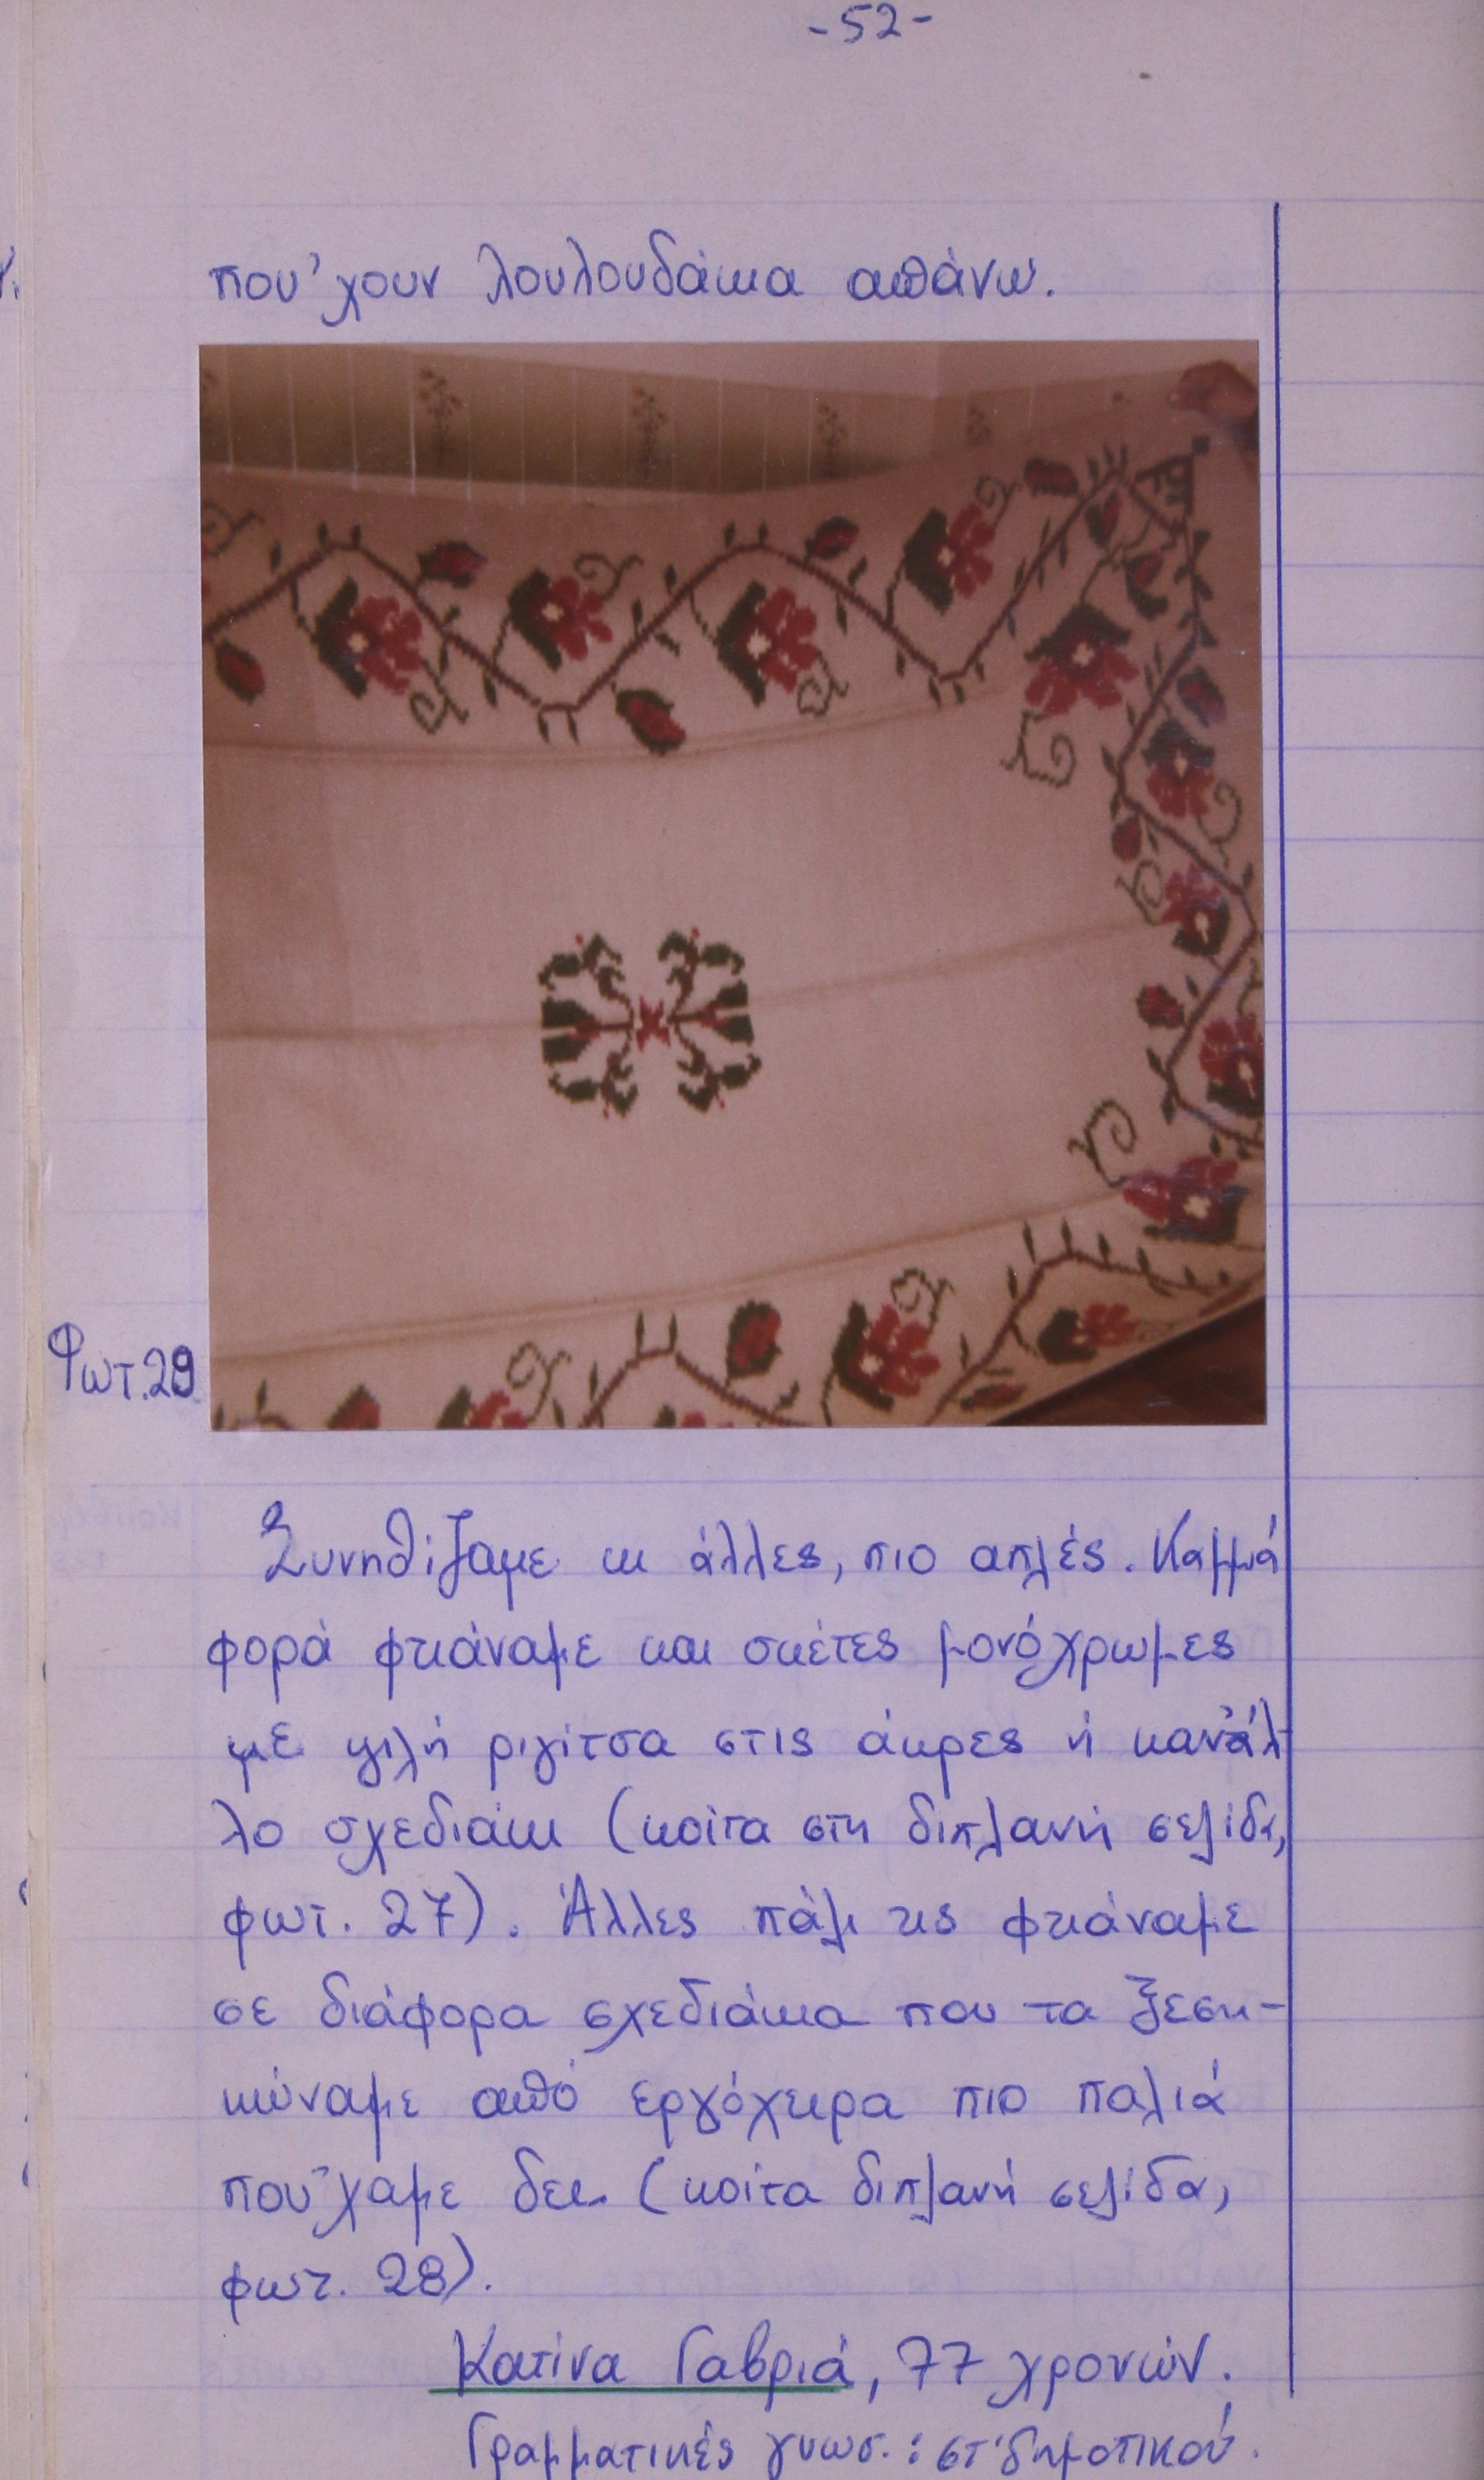 -52-
που' χουν λουλουδάκια απάνω.
Φωτ.29
Συνηθίζαμε κι άλλες, πιο απλές. Καμμιά
φορά φτιάναμε και σκέτες μονόχρωμες
με ψιλή ριγίτσα στις άκρες ή κανάλ-
λο σχεδιάκι (κοίτα στη διπλανή σελίδα,
φωτ. 27). Άλλες πάλι τις φτιάναμε
σε διάφορα σχεδιάκια που τα ξεση-
κώναμε από εργόχειρα πιο παλιά
που'χαμε δει (κοίτα διπλανή σελίδα,
φωτ. 28).
Κατίνα Γαβριά, 77 χρονών.
Γραμματικές γνωσ. : στ' δημοτικού.